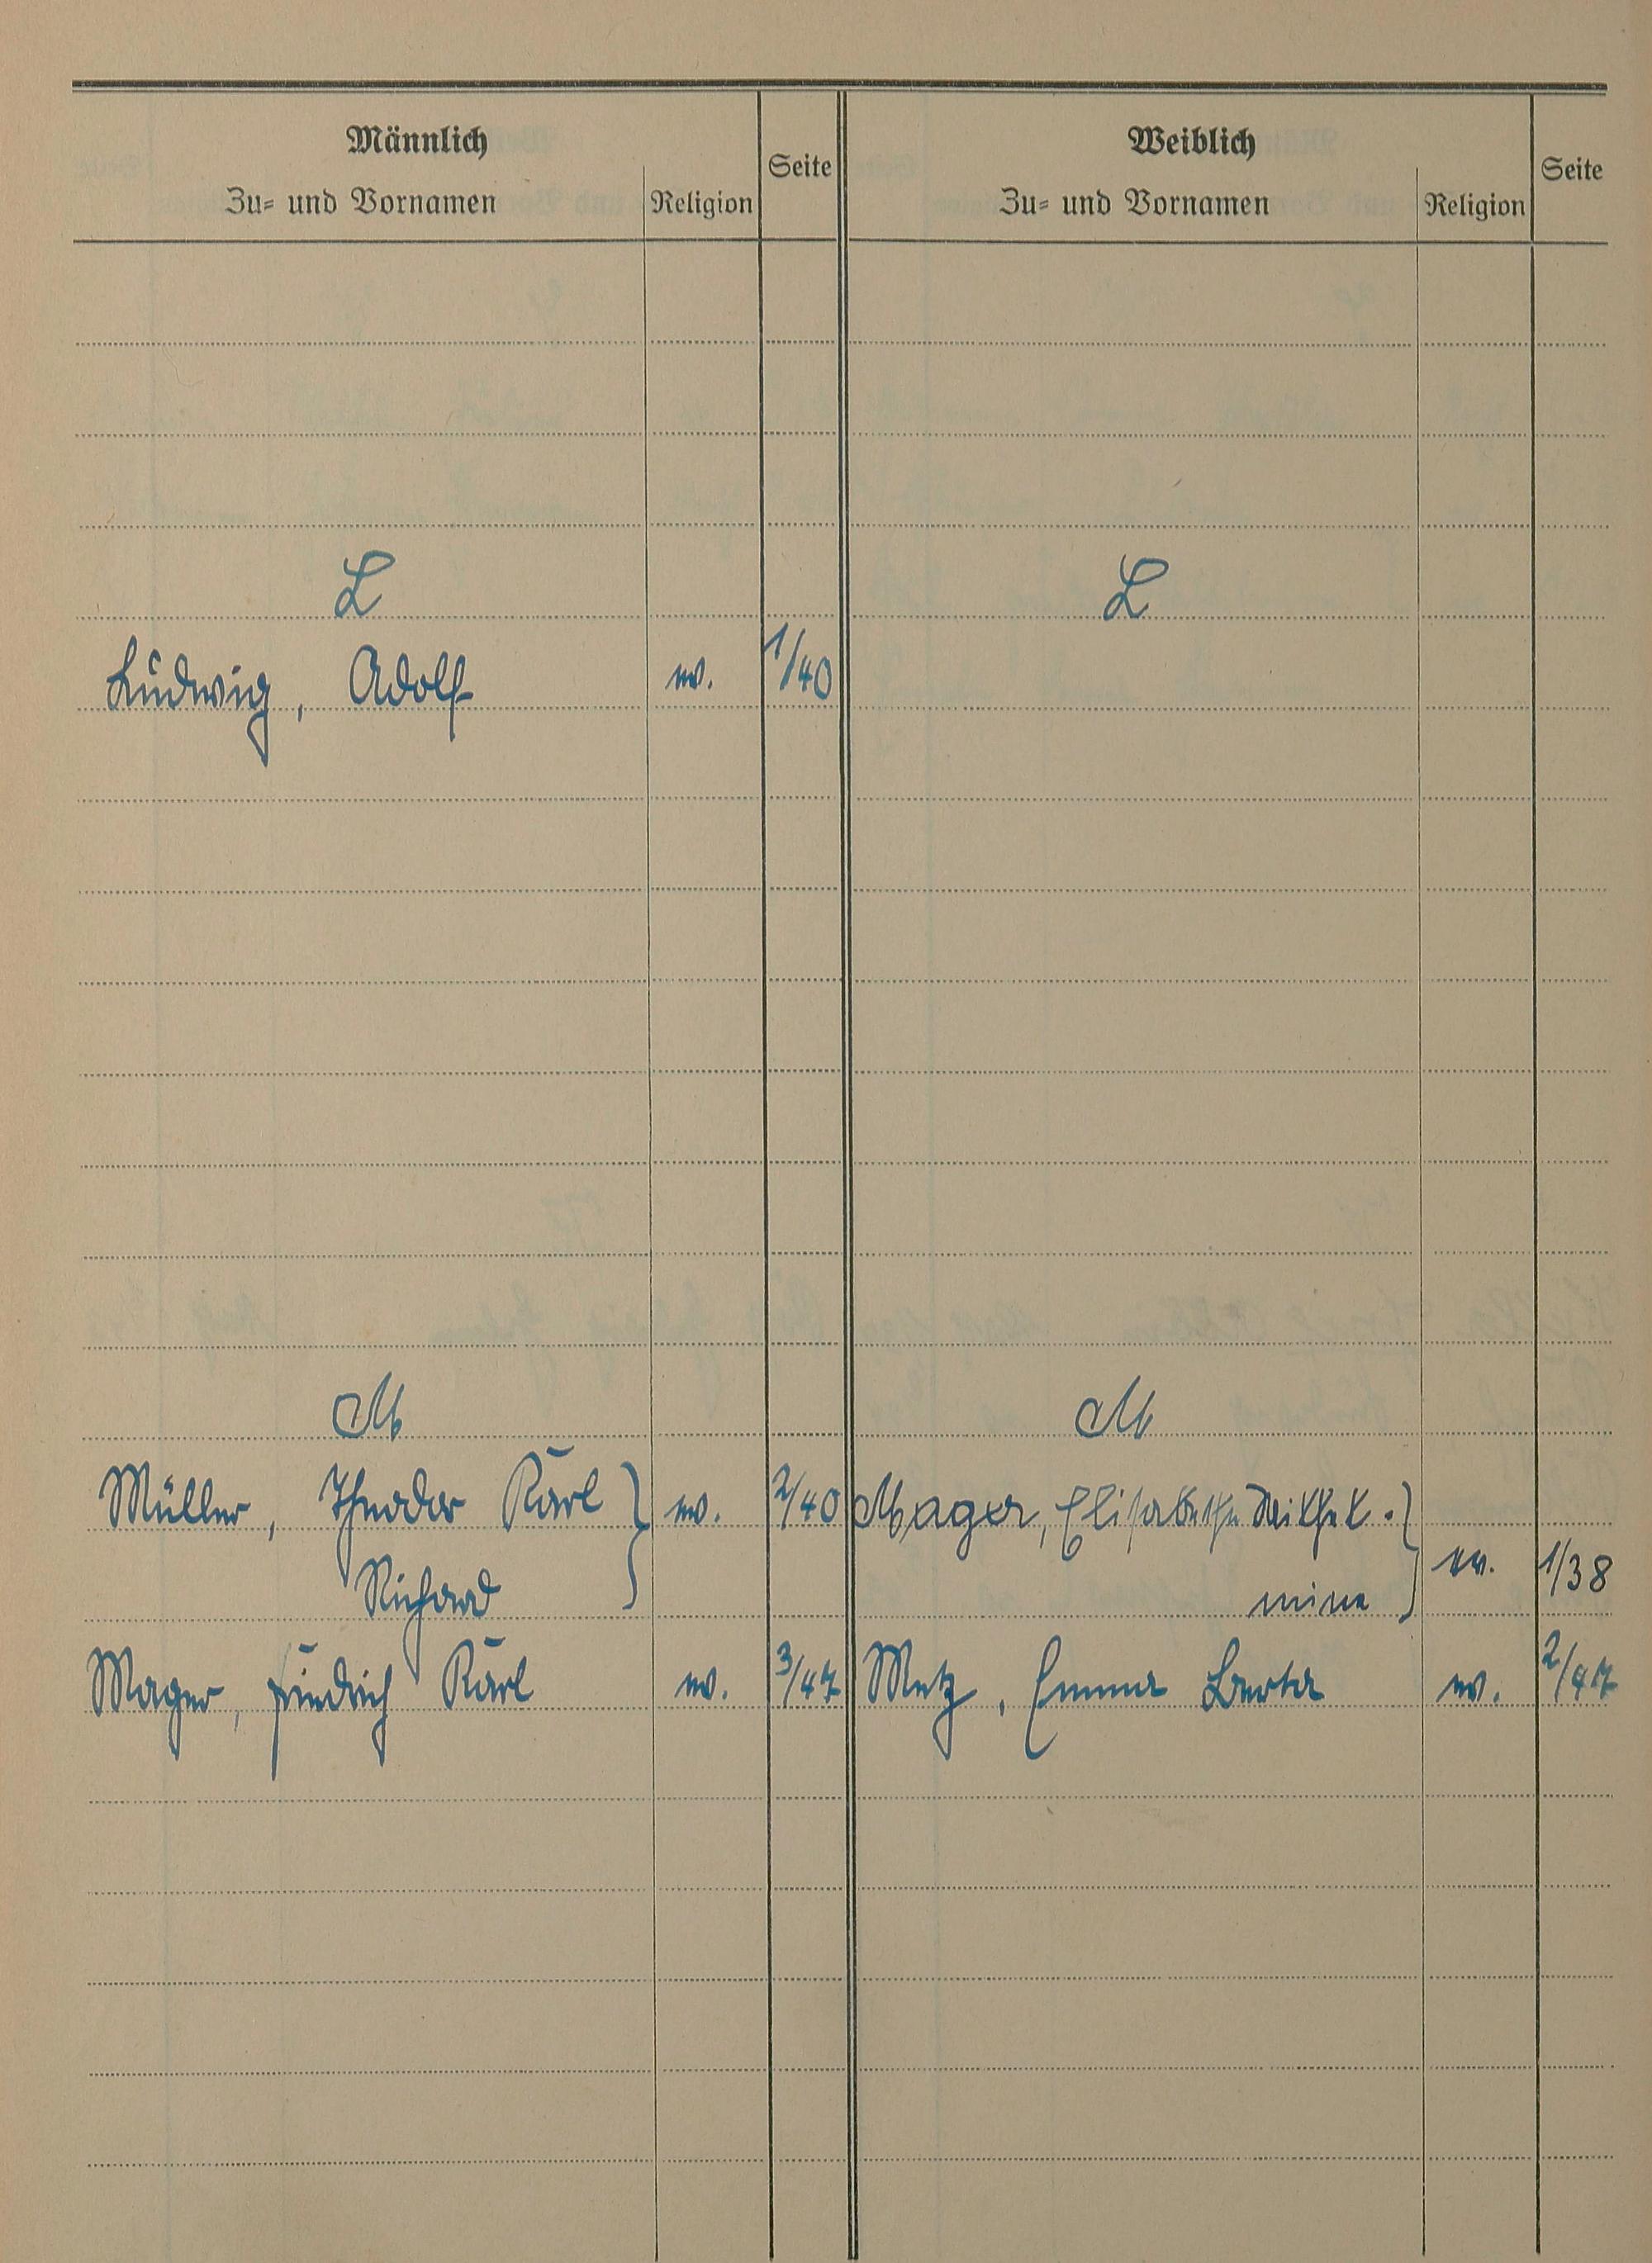 Männlich
Zu- und Vornamen
Religion
Seite
Weiblich
Zu- und Vornamen
Religion
Seite
L
L
Ludwig, Adolf ev. 1/40
M
M
Müller, Theodor Karl ev. 2/40
Richard
Mager, Elisabethe Wilhel.
mine ev. 1/38
Mager, Friedrich Karl ev. 3/47
Metz, Emma Berta ev. 2/47